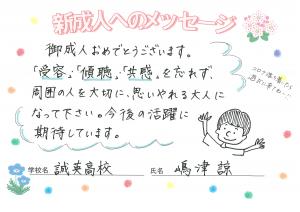 新成人へのメッセージ
御成人おめでとうございます。
「受容」「傾聴」「共感」を忘れず、
周囲の人を大切に、思いやれる大人に
なって下さい。今後の活躍に
期待しています。
学校名 誠英高校 氏名 嶋津 諒